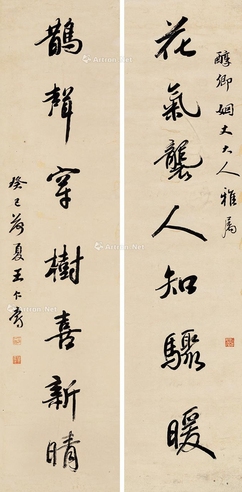 醇卿姻丈大人雅属
花氣襲人知驟暖
鵲聲穿樹喜新晴
癸巳荷夏王仁堪